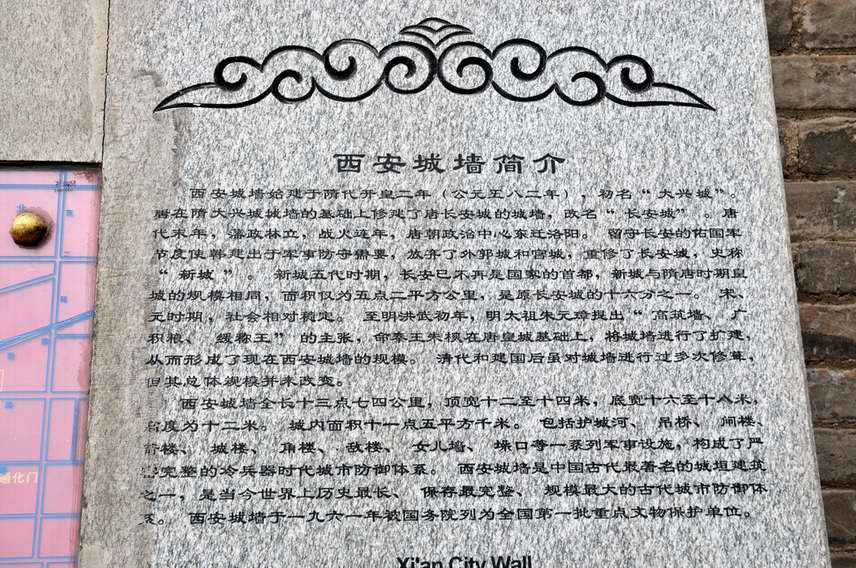 西安城墙简介
西安城墙始建于隋代开皇二年（公元五八二年），初名“大兴城”。
唐在隋大兴城城墙的基础上修建了唐长安城的城墙，改名“长安城”。唐
代末年，藩政林立，战火连年，唐朝政治中心东迁洛阳。留守长安的佑国军
节度使韩建出于军事防守需要，放弃了外郭城和宫城，重修了长安城，史称
“新城”。新城五代时期，长安已不再是国家的首都，新城与隋唐时期皇
城的规模相同，面积仅为五点二平方公里，是原长安城的十六分之一。宋、
元时期，社会相对稳定。至明洪武初年，明太祖朱元璋提出“高筑墙、广
积粮、缓称王”的主张，命秦王朱樉在唐皇城基础上，将城墙进行了扩建，
从而形成了现在西安城墙的规模。清代和建国后虽对城墙进行过多次修葺，
但其总体规模并未改变。
西安城墙全长十三点七四公里，顶宽十二至十四米，底宽十六至十八米，
高度为十二米。城内面积十一点五平方千米。包括护城河、吊桥、闸楼、
箭楼、城楼、角楼、敌楼、女儿墙、垛口等一系列军事设施，构成了严
密完整的冷兵器时代城市防御体系。西安城墙是中国古代最著名的城垣建筑
之一，是当今世界上历史最长、保存最完整、规模最大的古代城市防御体
系。西安城墙于一九六一年被国务院列为全国第一批重点文物保护单位。
Xi'an City Wall
通化门
北